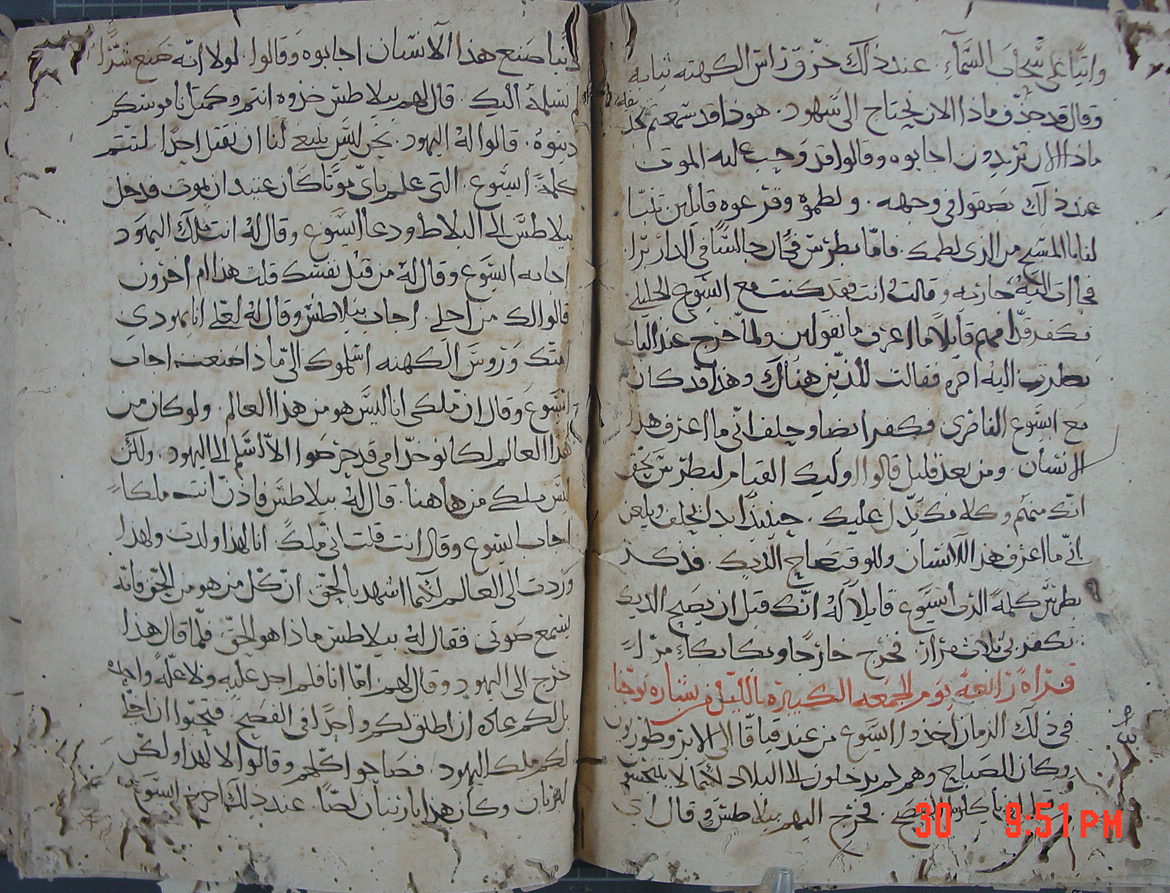 واتيًا على سحاب السماء. عند ذلك خرّق راس الكهنه ثيابه
وقال قد جدّف ماذا الان يحتاج الى شهود. هوذا قد سمعتم
ماذا الان تريدون اجابوه وقالوا قد وجب عليه الموت
عند ذلك بصقوا في وجهه. ولطموه وقرعوه قايلين تنبّا
لنا يا المسيح من الذى لطمك. فامّا بطرس فكان جالسًا في الدار برّا.
فجاات اليه جاريه وقالت انت فقد كنت مع ايسوع الجليلي
فكفر قدامهم قايلًا ما اعرف ما تقولين ولمّا خرج عند الباب
نظرت اليه اخره فقالت للذين هناك وهذا قد كان
مع ايسوع الناصري فكفر ايضا وحلف انّي ما اعرف هذا
الانسان. ومن بعد قليل قالوا اوليك القيام لبطرس بحق
انّك منهم وكلامك يدل عليك. حينيذٍ ابدا يحلف ويلعن
انّي ما اعرف هذا الانسان وللوقت صاح الديك. فذكر
بطرس كلمة الذى ايسوع قايلًا له انّك قبل ان يصيح الديك
تكفر بي ثلاث مرار. فخرج خارجًا وبكا بكاء مرّ
قراة رابعة يوم الجمعه الكبيره بالليل من بشاره يوحنا
في ذلك الزمان اخدوا ايسوع من عند قيافا الى الابروطوريون
وكان الصباح وهم لم يدخلون الى البلاط لكيما لا يتنجسوا
الفصح. فخرج اليهم بيلاطس وقال اى
صنع هذا الانسان اجابوه وقالوا. لولا انّه صنع شرًّا
نسلمه اليك. قال لهم بيلاطس خدوه انتم وكمثل ناموسكم
دينوه. قالوا له اليهود. نحن ليس ينبغي لنا ان نقتل احدًا لتتم
كلمة ايسوع. التي علم بايّ موتًا كان عتيد ان يموت فدخل
بيلاطس الى البلاط ودعا ايسوع وقال له انت ملك اليهود
اجابه ايسوع وقال له من قبل نفسك قلت هذا ام اخرون
قالوا لك من اجلي. اجاب بيلاطس وقال له لعلّي انا يهودي
امتك وروس الكهنه اسلموك اليّ ماذا صنعت اجاب
ايسوع وقال ان ملكى انا ليس هو من هذا العالم. ولو كان من
هذا العالم لكانو خدّامي قد حرصوا الّا اسلّم الى اليهود. ولكن
ليس ملكي من هاهنا. قال له بيلاطس فاذن انت ملكًا
اجاب ايسوع وقال انت قلت انّي ملكًا. انا لهذا ولدت ولهذا
وردت الى العالم لكيما اشهد بالحقّ. انّ كل من هو من الحق فانّه
يسمع صوتى. فقال له بيلاطس ماذا هو الحقّ. فلمّا قال هذا
خرج الى اليهود وقال لهم امّا انا فلم اجد عليه ولا علّةً واحده
بل لكم عاده ان اطلق لكم واحدًا في الفصح. فتحبّوا ان اخلّي
لكم ملك اليهود. فصاحوا كلهم وقالوا لا لهذا ولكن
لبرنبان وكان هذا بارنبان لصًّا. عند ذلك اخذ ايسوع